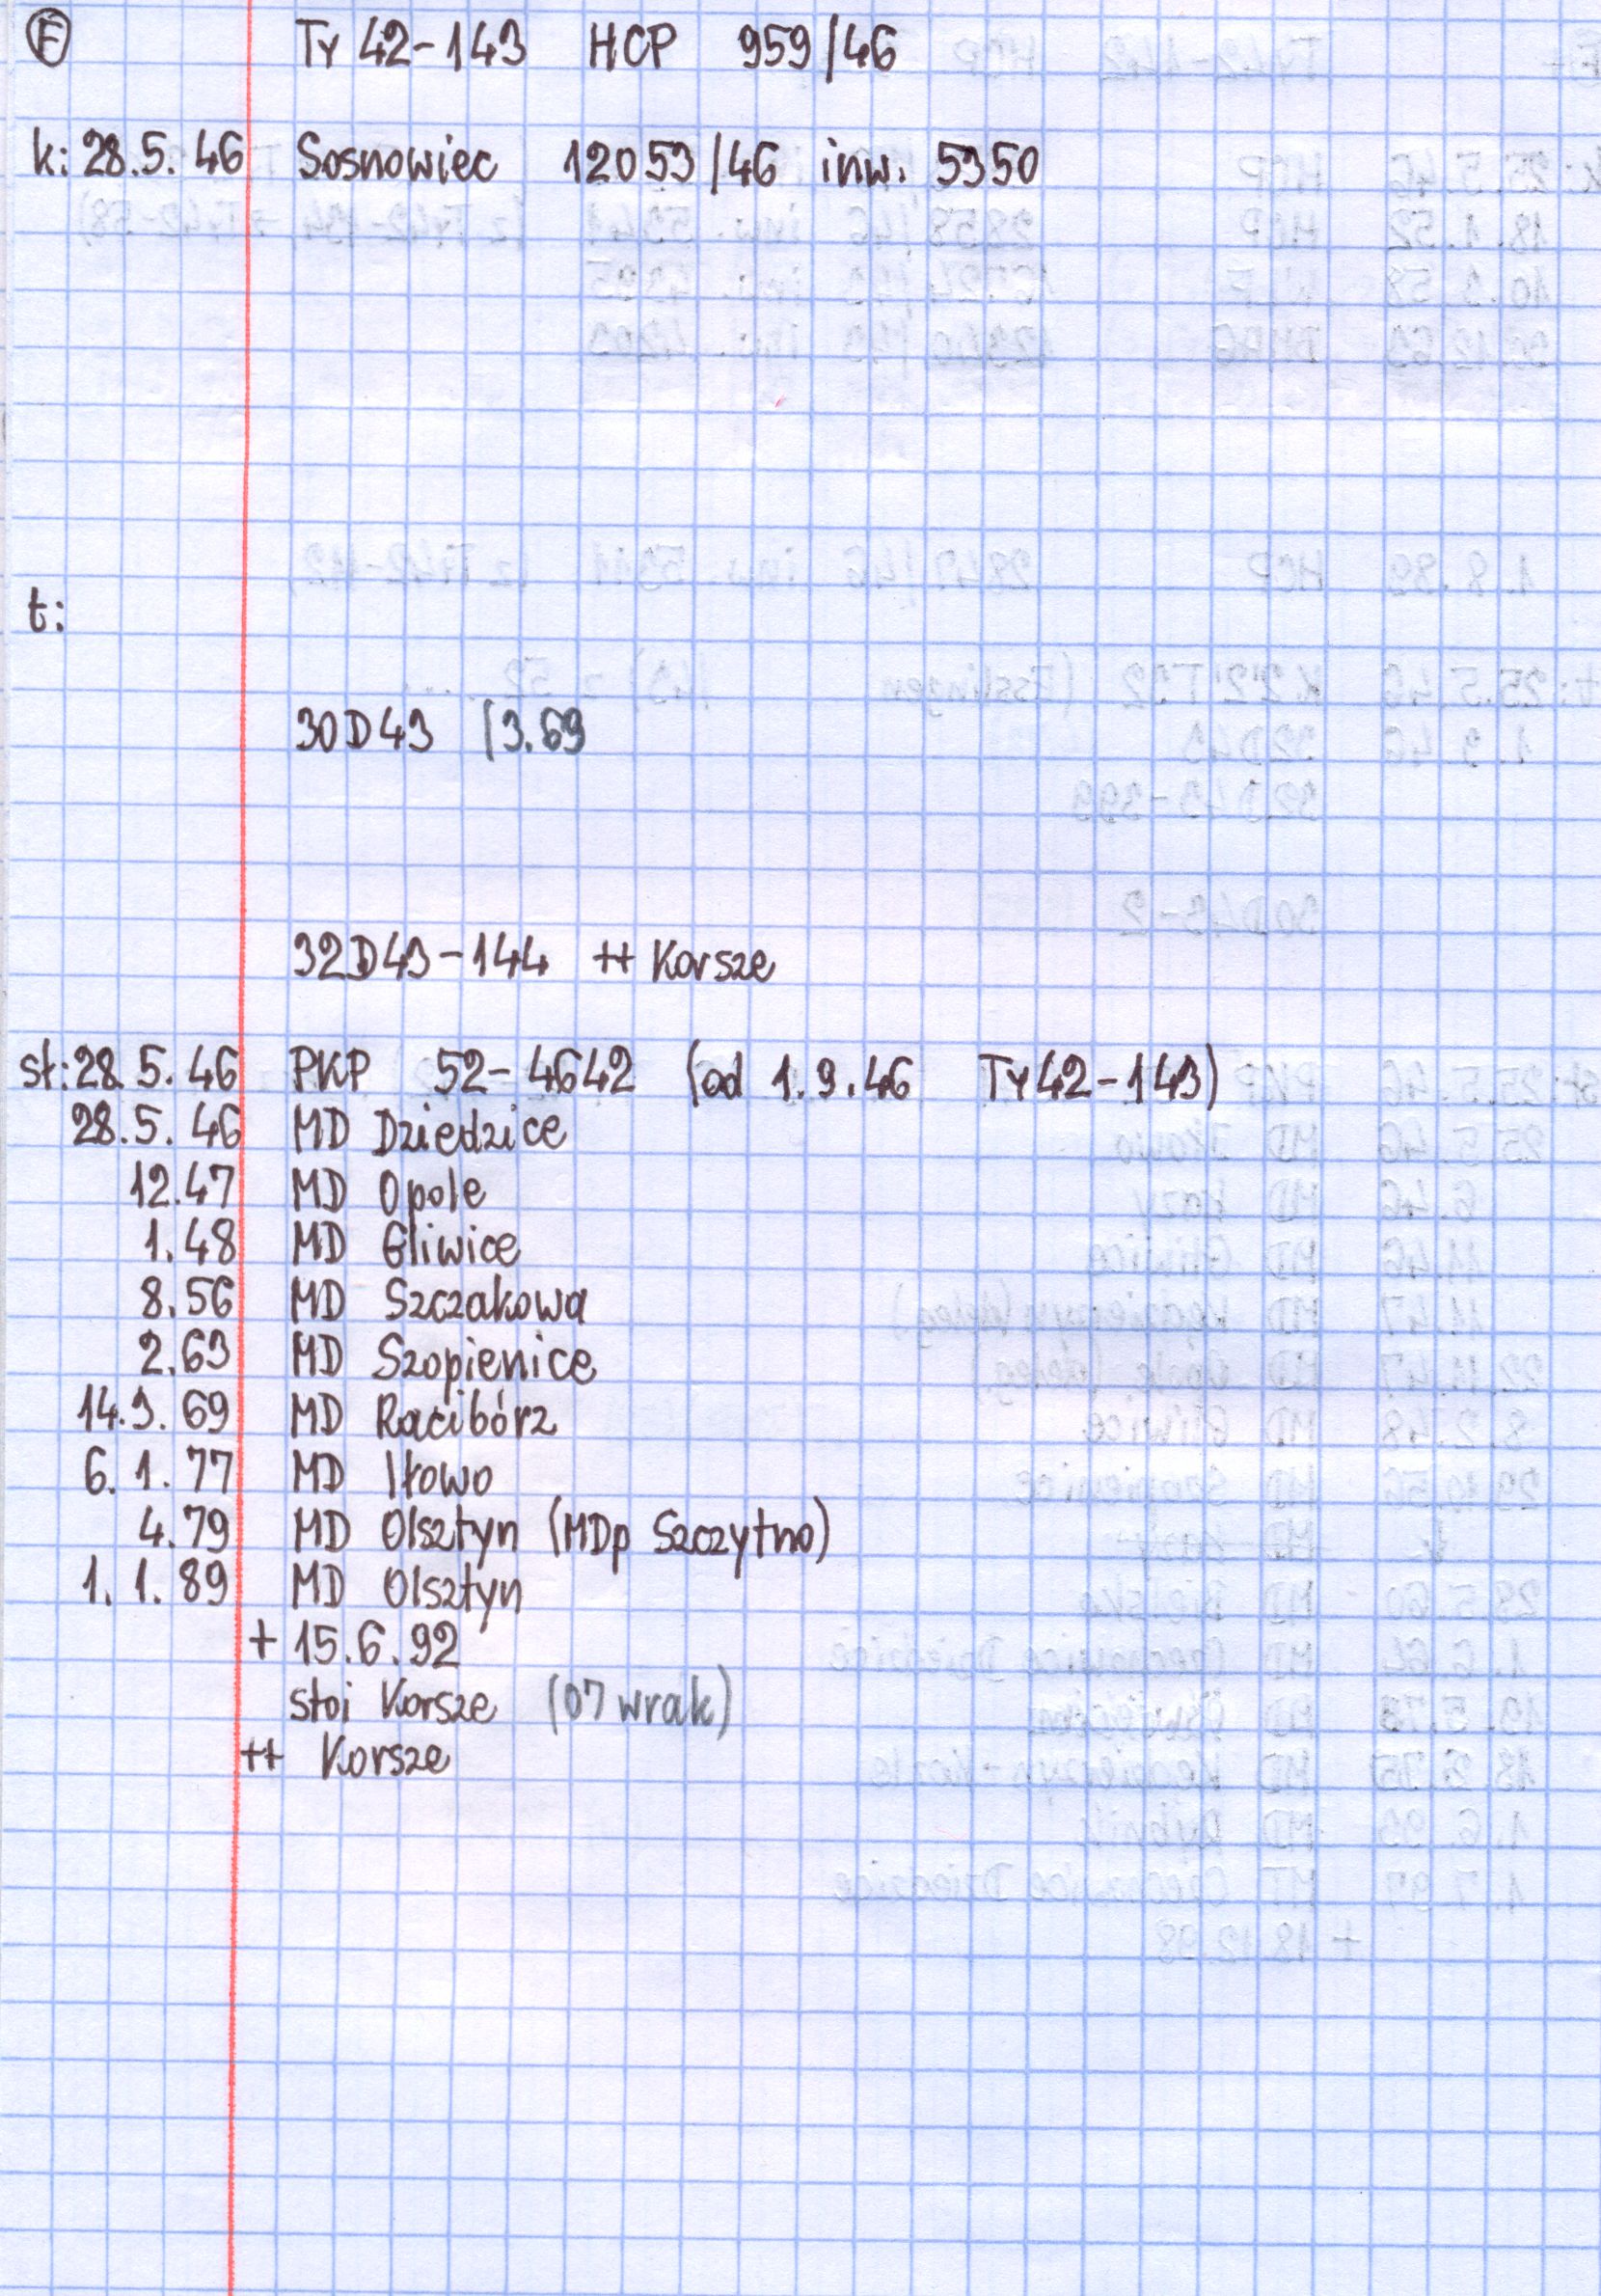 E Ty 42-143 HCP 959/46
k: 28.5.46 Sosnowiec 12053/46 inw. 5350
t:
30D43 /3.69
32D43-144 ++ Korsze
st: 28.5.46 PKP 52-4642 (od 1.9.46 Ty42-143)
28.5.46 MD Dziedzice
12.47 MD Opole
1.48 MD Gliwice
8.56 MD Szczakowa
2.63 MD Szopienice
14.3.69 MD Racibórz
6.1.77 MD Iłowo
4.79 MD Olsztyn (MDp Szczytno)
1.1.89 MD Olsztyn
+ 15.6.92
stoi Korsze (07 wrak)
++ Korsze